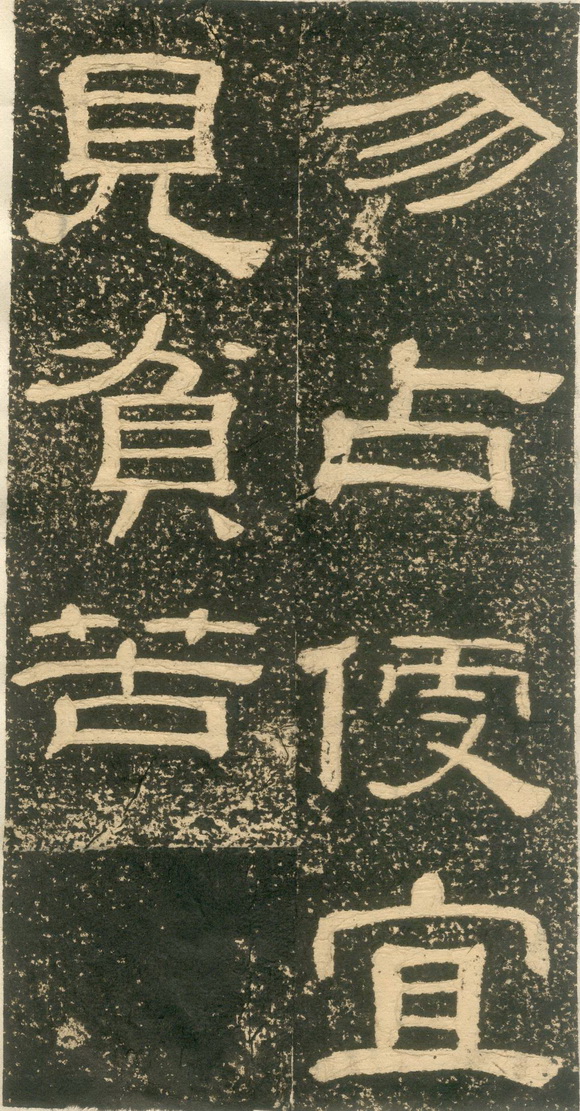 勿占便宜
見貧苦